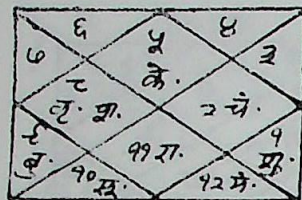 ६ ५ ४
७ ३
के.
८
बृ. श. २ चं.
९ १
बु. ११ रा. शु.
१० सू. १२ मं.